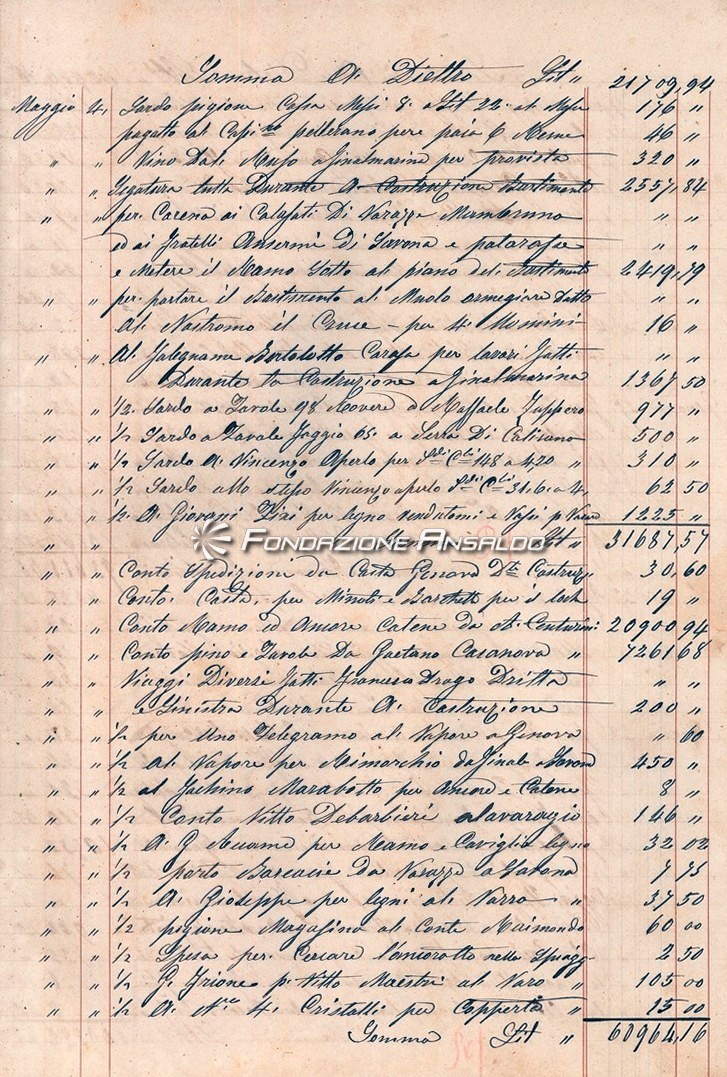 Somma A. Dietro Lit „ 21709,94
Maggio 4, Sardo pigione Casa Mesi 8. a Lit 22. al Mese 176 „
pagato al pellerano pere paia 6. Reme 46 „
„ „ Vino Dati Muso a finalmarina per provista 320 „
„ „ Segatura tutta Durante A. Costruzione Bastimento 2557,84
„ „ per. Carena ai Calafati Di Varazze „ „
ed ai fratelli Ansermi Di Savona e „ „
e Metere il Ramo Sotto al piano del Bastimento 2419,79
„ „ per. portare il Bastimento al Muolo ormegiare Datto „ „
Al Nostromo il Cruce – per 4. Uomini – 16 „
„ „ Al falegname Bortolotto Carafa per lavori fatti „ „
Durante la Costruzione a finalmarina 1367 50
„ „ 1/2. Sardo a Tavole 98 Rovere d Raffaele 977 „
„ „ 1/2 Sardo a Tavole faggio 65. a Serra Di Calisano 500 „
„ „ 1/2 Sardo A. Vincenzo Aperlo per 148 a 4,20 „ 310 „
„ „ 1/2 Sardo allo stesso Vincenzo aperlo 31,6. a 4, 62 50
„ „ 1/2. A. Giovani per legno vendutomi e 1225 „
FONDAZIONE ANSALDO
„ „ Lit „ 31687,57
„ „ Conto Spedizioni da Costa Genova 30,60
„ „ Conto. Costa, per e per il 19 „
„ „ Conto Ramo ed Ancore Catene da A. Centurini 20900 94
„ „ Conto pino e Tavole Da Gaetano Casanova „ 7261 68
„ „ Viaggi Diversi fatti Francesco Drago Dritta „ „
„ „ e Sinistra Durante A. Costruzione 200 „
„ „ 1/2 per Uno Telegramo al Vapore a Genova „ 60
„ „ 1/2 Al Vapore per Rimorchio da finale a Savona 450 „
„ „ 1/2 al Marabotto per Ancore e Catene 8 „
„ „ 1/2 Conto Vitto Debarbieri alavaragio 146 „
„ „ 1/2 A. G Accame per Ramo e Caviglie legno 32 02
„ „ 1/2 porto Barcacie Da Varazze a Savona 7 75
„ „ 1/2 A. Gioseppe per legni al Varro „ 37 50
„ „ 1/2 pigione Magasino al Conte Raimondo 60 00
„ „ 1/2 Spesa per. Cercare nella 2 50
„ „ 1/2 G. Frione p. Vitto Maestri al Varo „ 105 00
„ „ 1/2 A. 4. Cristalli per Copperta „ 15 00
Somma Lit „ 60964,16